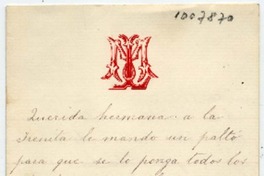 1007870
Querida hermana a la
Irenita le mando un paltó
para que se lo ponga todos los